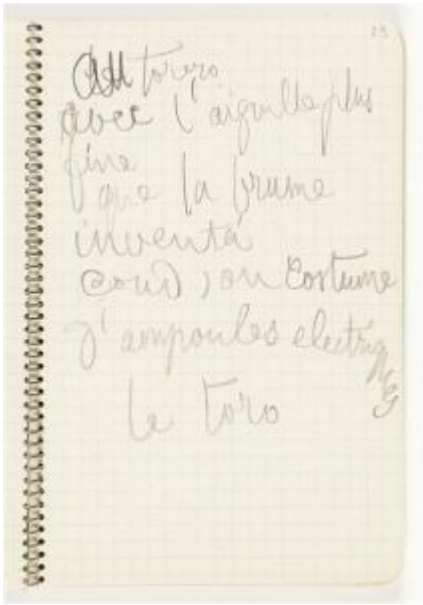 29
Au torero
avec l'aiguille plus
fine
que la brume
inventa
coud son costume
d'ampoules electriques
le toro